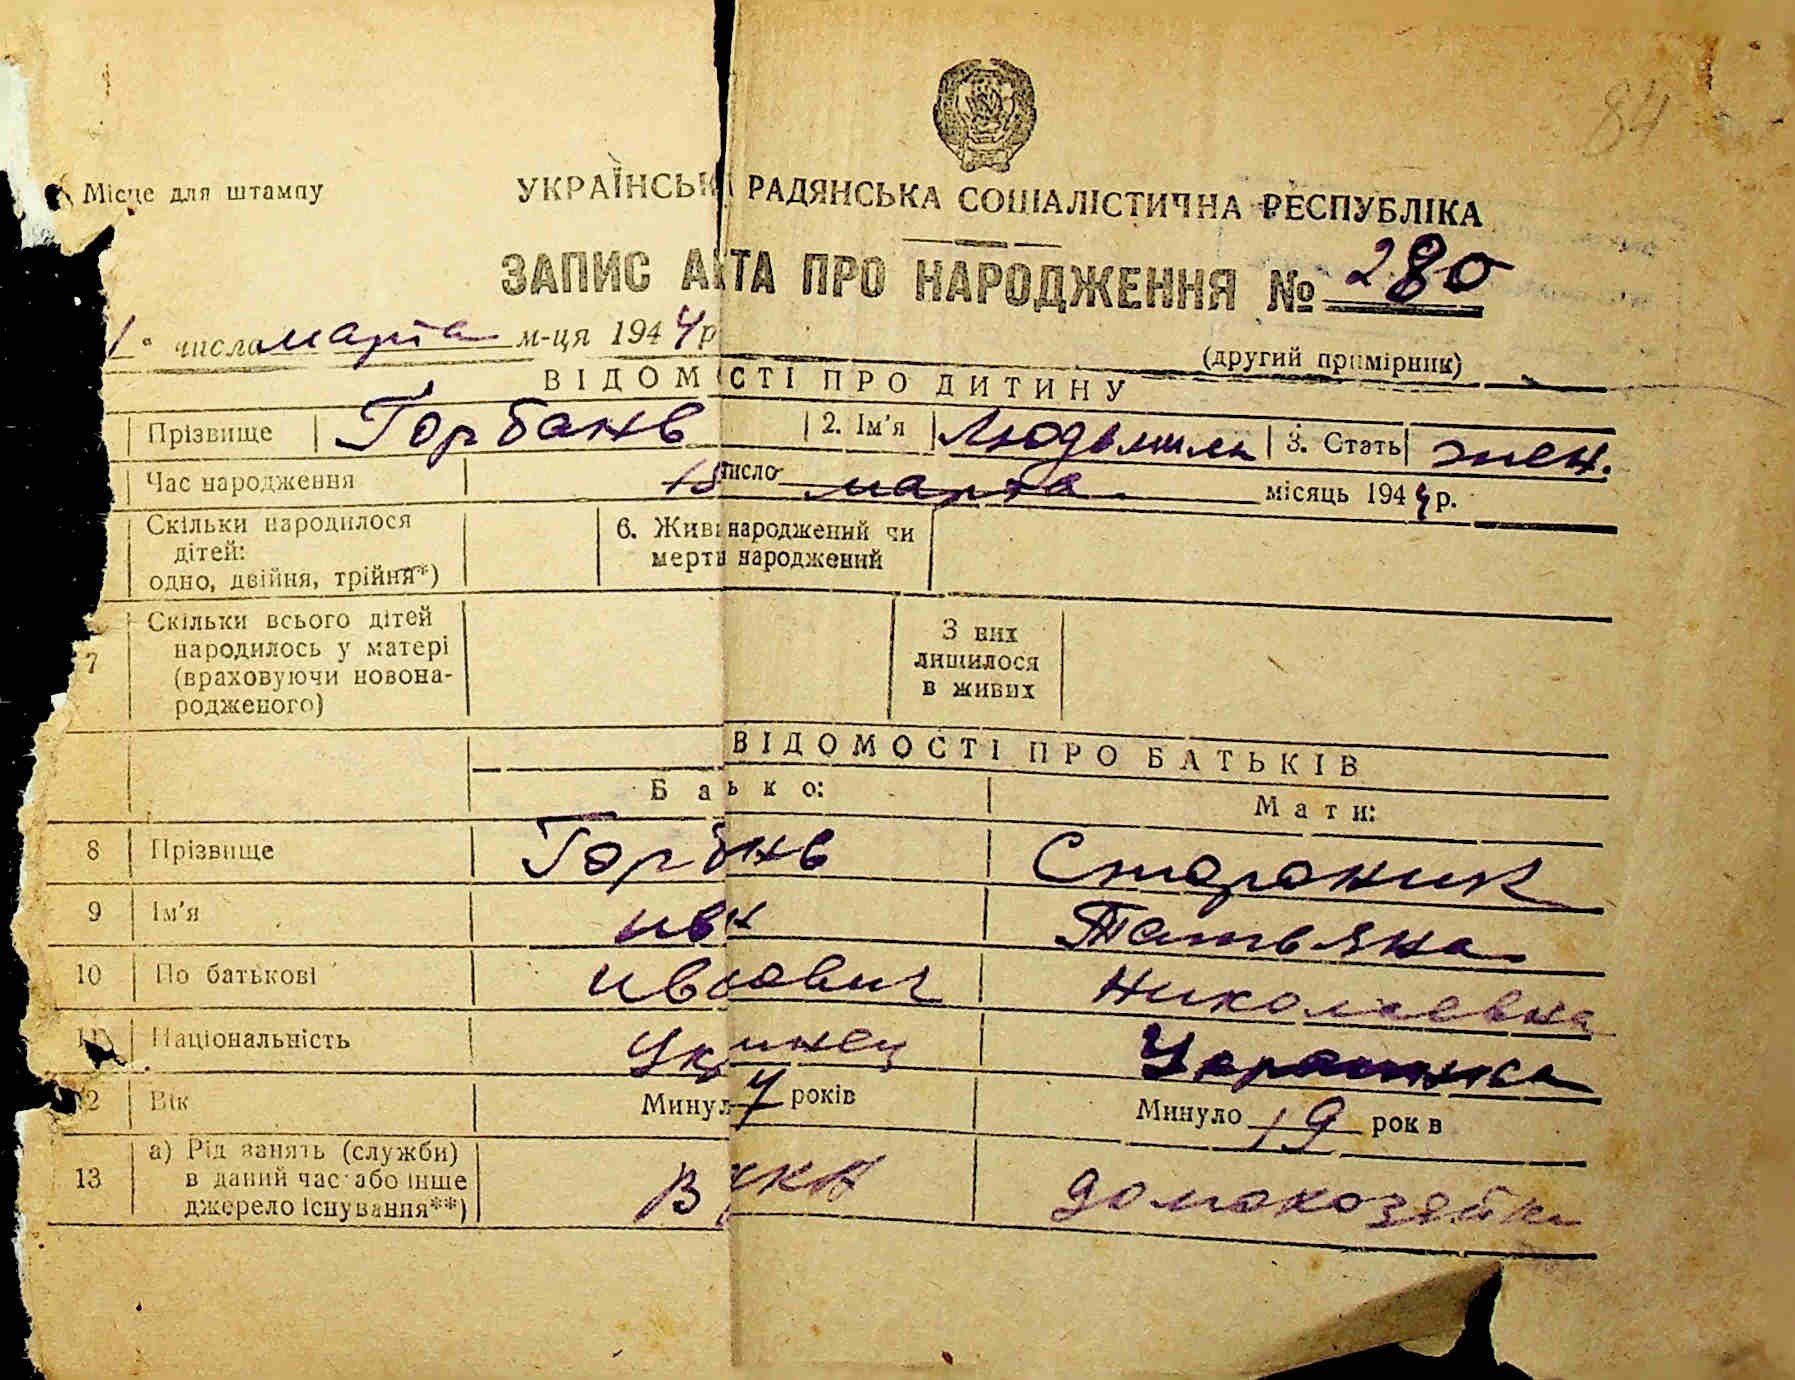 84
Місце для штампу
УКРАЇНСЬКА РАДЯНСЬКА СОЦІАЛІСТИЧНА РЕСПУБЛІКА
ЗАПИС АКТА ПРО НАРОДЖЕННЯ № 280
числа марта м-ця 1944 р
(другий примірник)
ВІДОМОСТІ ПРО ДИТИНУ
Прізвище Горбань 2. Ім'я Людмила 3. Стать жен.
Час народження 15 число марта місяць 1944 р.
Скільки народилося дітей: одно, двійня, трійня*) 6. Живі народжений чи мертві народжений
7 Скільки всього дітей народилось у матері (враховуючи новонародженого) З них лишилося в живих
ВІДОМОСТІ ПРО БАТЬКІВ
Батько: Мати:
8 Прізвище Горбнь Стороник
9 Ім'я Ивн Татьяна
10 По батькові Ивович Николаевна
11 Національність Укринец Украинка
12 Вік Минул 4 років Минуло 19 рок в
13 а) Рід занять (служби) в даний час або інше джерело існування**) домохозяйка